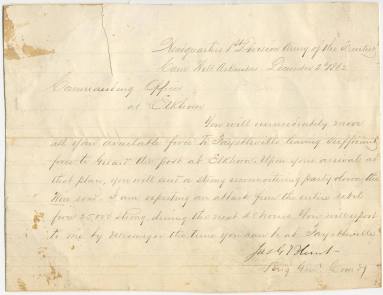 Headquarters 1st Division Army of the Frontier
Cane Hill Arkansas December 2d 1862
Commanding Officer
at Elkhorn
You will immediately move
all your available force to Fayetteville leaving sufficient
force to guard the post at Elkhorn. Upon your arrival at
that place, you will send a strong reconnoitering party down the
Wire road. I am expecting an attack from the entire rebel
force 25,000 strong during the next 24 hours. You will report
to me by Messenger the time you can be at Fayetteville
Jas G Blunt
Brig Genl Comdg